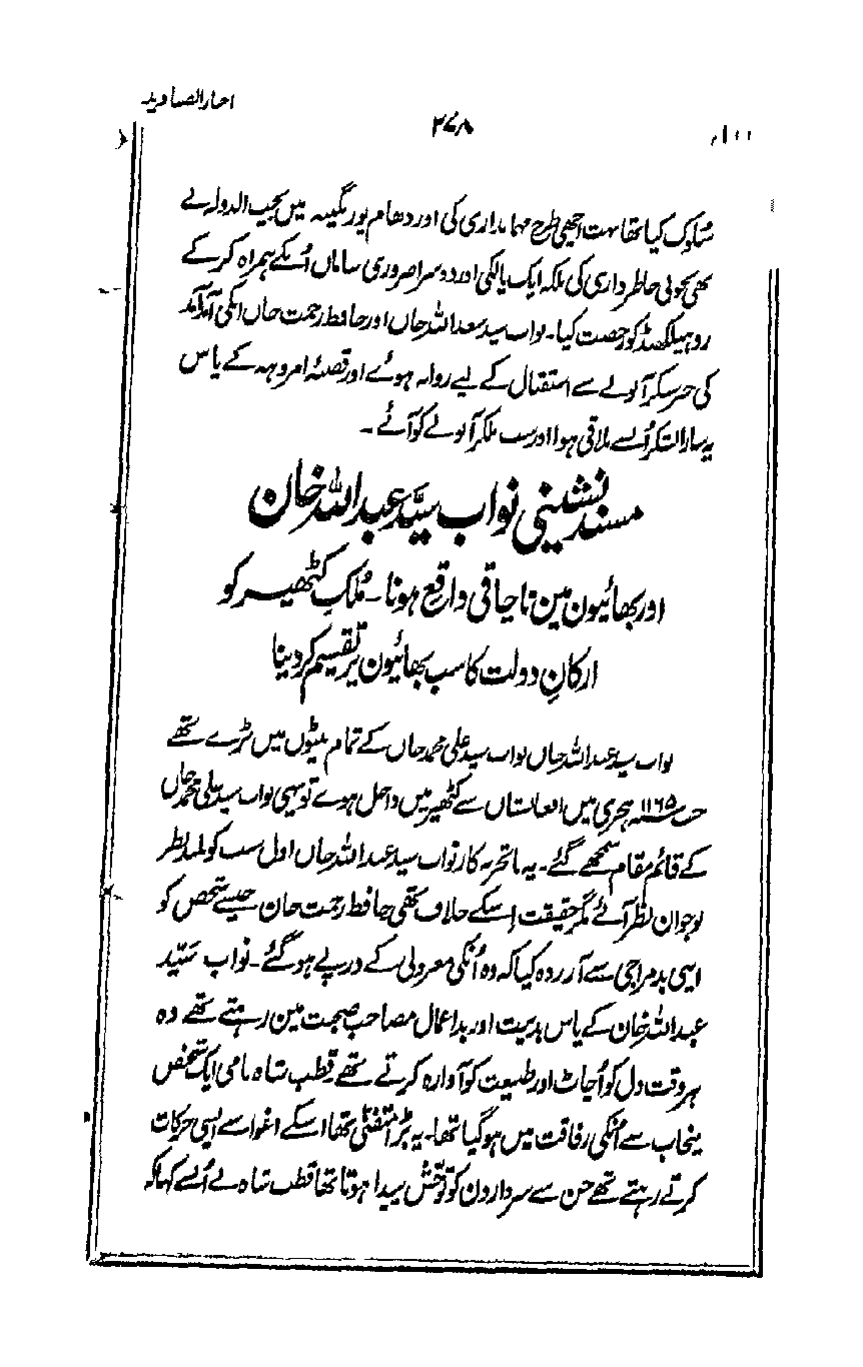 اخبار الصنادید
۲۷۸
سلوک کیا تھا بہت اچھی طرح مہمانداری کی اور دھام پور نگینہ میں نجیب الدولہ نے
بھی بخوبی خاطرداری کی بلکہ ایک پالکی اور دوسرا ضروری سامان اُنکے ہمراہ کرکے
روہیلکھنڈ کو رخصت کیا۔ نواب سید سعد اللہ خاں اور حافظ رحمت خاں انکی آمد آمد
کی خبر سنکر آنولے سے استقبال کے لیے روانہ ہوئے اور قصبۂ امروہہ کے پاس
یہ سارا لشکر اُنسے ملاقی ہوا اور سب ملکر آنولے کو آئے۔
مسند نشینی نواب سیّد عبد اللہ خان
اور بھائیون مین ناچاقی واقع ہونا۔ مُلک کٹھیر کو
ارکانِ دولت کا سب بھائیون پر تقسیم کردینا
نواب سید عبد اللہ خاں نواب سید علی محمد خاں کے تمام بیٹوں میں بڑے تھے
جب ۱۱۶۵ سنہ ہجری میں افغانستاں سے کٹھیر میں داخل ہوے تو یہی نواب سید علی محمد خاں
کے قائم مقام سمجھے گئے۔ یہ ناتجربہ کار نواب سید عبد اللہ خاں اول سب کو بلند نظر
نوجوان نظر آئے مگر حقیقت اسکے خلاف تھی حافظ رحمت خان جیسے شخص کو
ایسی بدمزاجی سے آزردہ کیا کہ وہ اُنکی معزولی کے درپے ہو گئے۔ نواب سَیّد
عبد اللہ خان کے پاس بدنیت اور بداعمال مصاحب صحبت مین رہتے تھے وہ
ہر وقت دل کو اُچاٹ اور طبیعت کو آوارہ کرتے تھے قطب شاہ نامی ایک شخص
پنجاب سے اُنکی رفاقت میں ہو گیا تھا۔ یہ بڑا متفنّی تھا اسکے اغوا سے ایسی حرکات
کرتے رہتے تھے جن سے سردارون کو توحّش پیدا ہوتا تھا قطب شاہ نے اُنسے کہا کہ